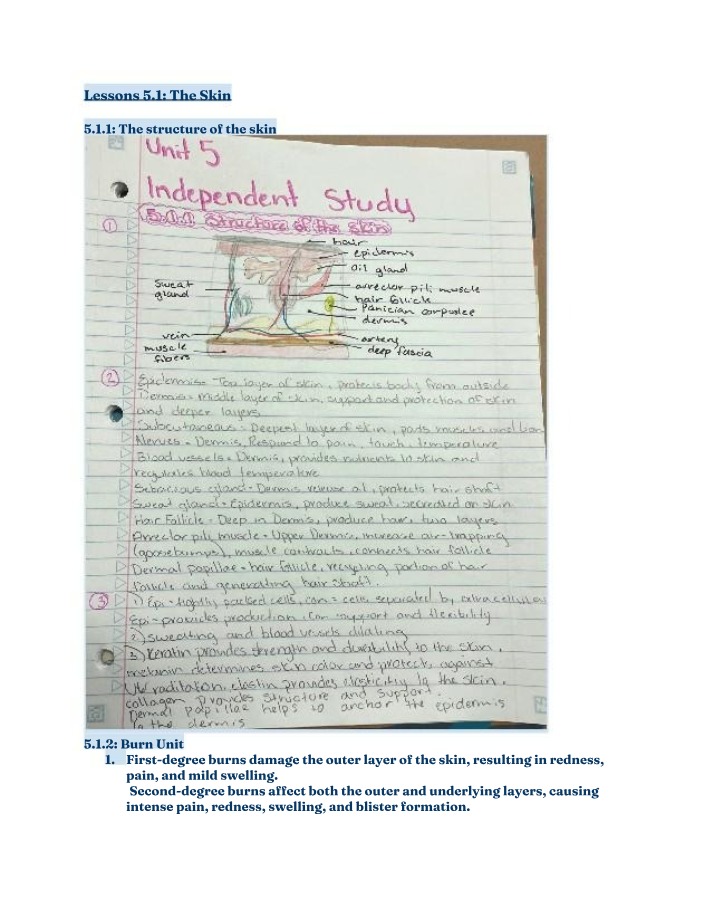 Lessons 5.1: The Skin
5.1.1: The structure of the skin
Unit 5
Independent Study
① 5.1.1 Structure of the Skin
hair
epidermis
oil gland
sweat gland
arrector pili muscle
hair follick
Panician corpuslee
dermis
vein
artery
muscle fibers
deep fascia
② Epidermis = Top layer of skin, protects body from outside
Dermis = middle layer of skin, support and protection of skin
and deeper layers
Subcutaneous = Deepest layer of skin, pads muscles and bon
Nerves = Dermis, Respond to pain, touch, temperature
Blood vessels = Dermis, provides nutrients to skin and
regulates blood temperature
Gland = Dermis release oil, protects hair shaft
Sweat gland = Epidermis, produce sweat, secreated on skin
Hair Follicle = Deep in Dermis, produce hair, two layers
Arrector pili muscle = Upper Dermis, increase air-trapping
(goosebumps), muscle contracts, connects hair follicle
Dermal papillae = hair follicle, recycling portion of hair
follicle and generating hair shaft.
③ 1) Epi = tightly packed cells, con = cells separated by extracellular
Epi = provides production, Con = support and flexibility
2) sweating and blood vessels dilating
3) Keratin provides strength and durability to the skin,
melanin determines skin color and protect against
UV raditaton, elastin provides elasticity to the skin.
collagen provides structure and support.
Dermal papillae helps to anchor the epidermis
to the dermis
5.1.2: Burn Unit
1. First-degree burns damage the outer layer of the skin, resulting in redness,
pain, and mild swelling.
Second-degree burns affect both the outer and underlying layers, causing
intense pain, redness, swelling, and blister formation.